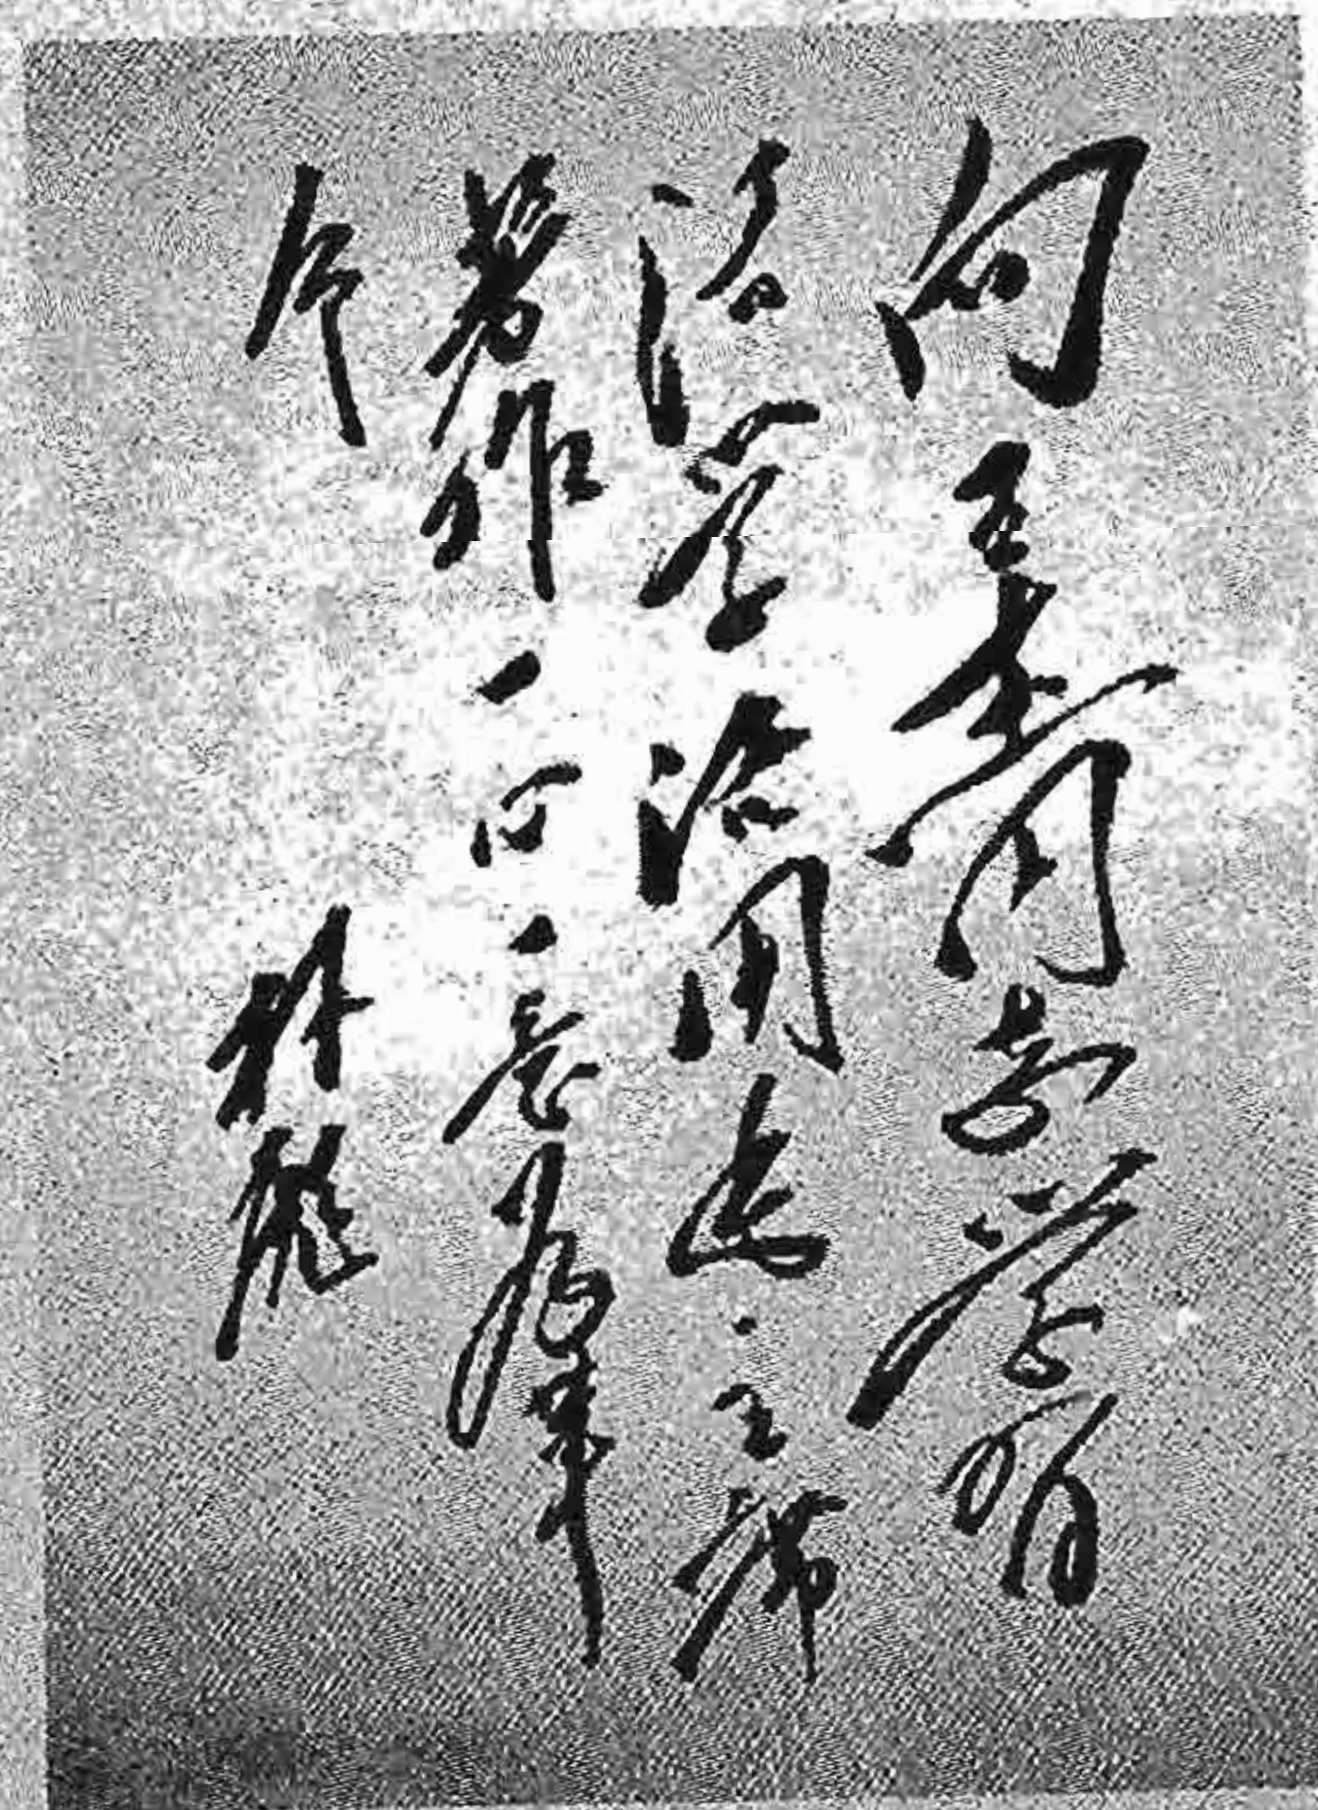 向王杰同志学习
活学活用毛主席
著作一心一意为革
命 林彪